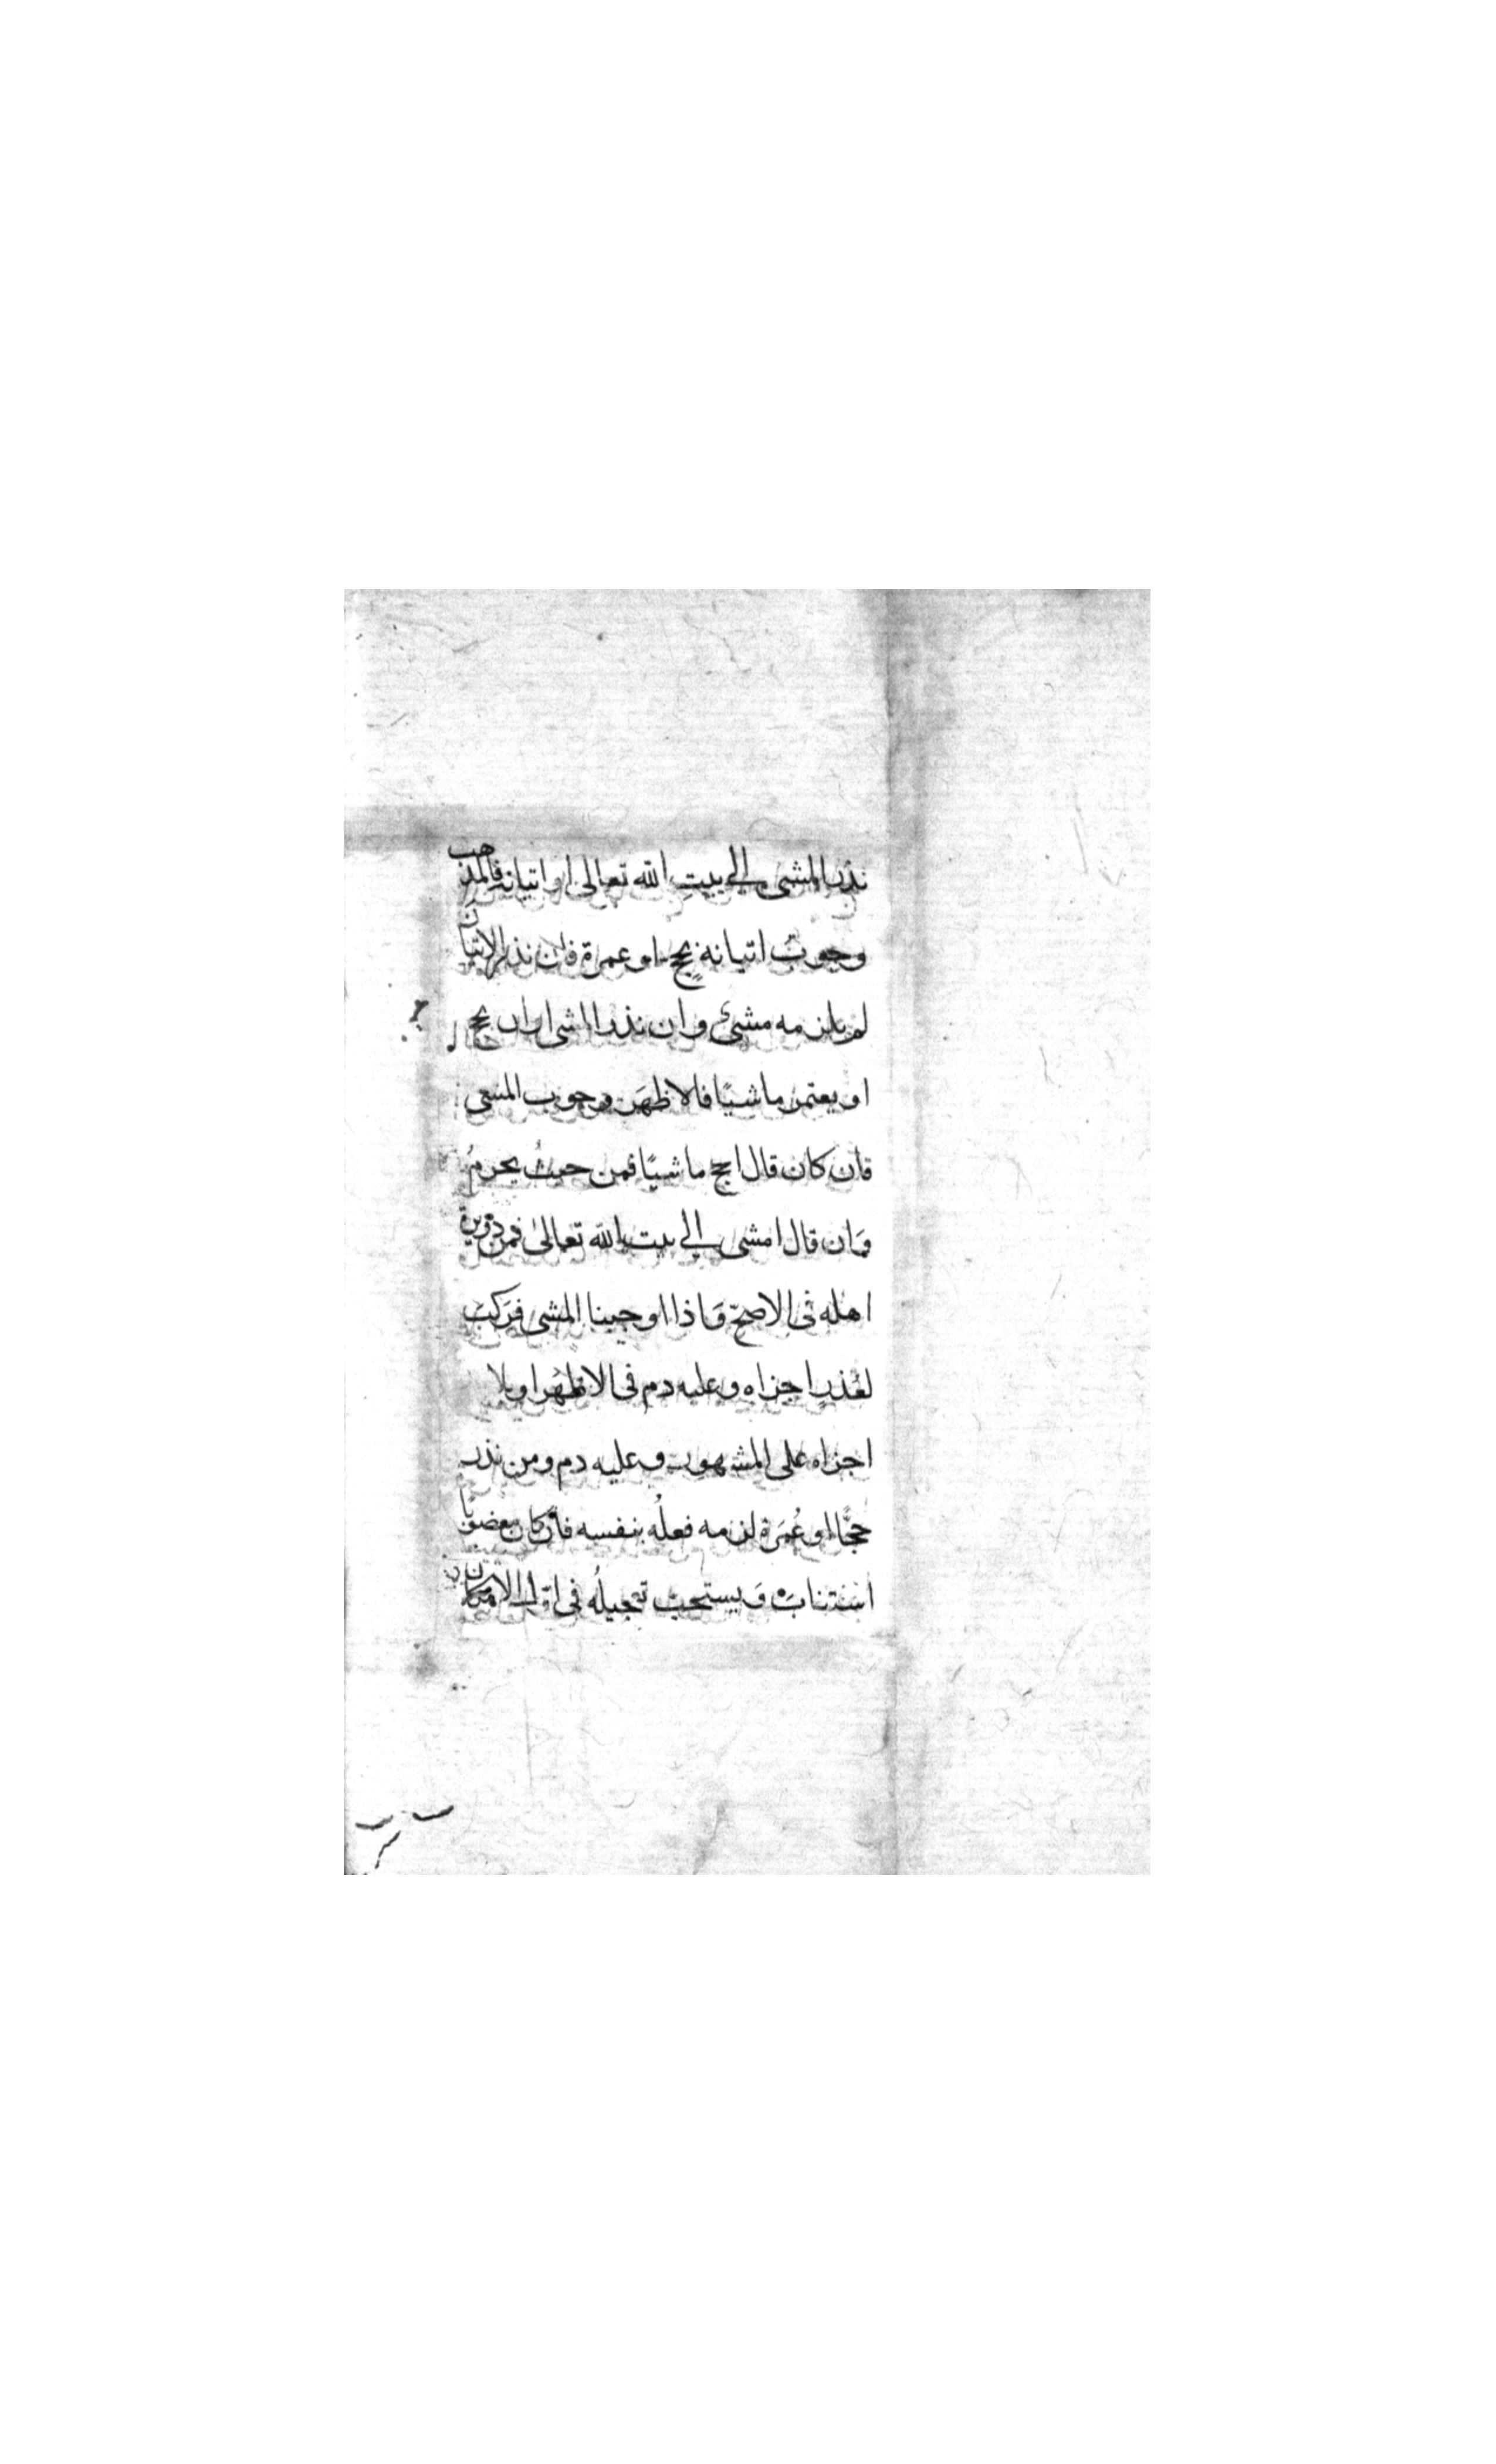 نذر المشى الى بيت الله تعالى او اتيانه فالمذهب
وجوب اتيانه بحج او عمرة فان نذر الاتيان
لم يلزمه مشى وان نذر المشى او ان يحج
او يعتمر ماشيًا فالاظهَر وجوب المشى
فان كان قال احج ماشيًا فمن حيثُ يحرمُ
وَان قال امشى الى بيت الله تعالى فمن دويرة
اهله فى الاصحّ وَاذا اوجبنا المشى فرَكبَ
لعُذرٍ اجزاه وعليه دم فى الاظهر او بلا
اجزاه على المشهور وعليه دم ومن نذر
حجًّا او عُمرَة لزمه فعلُه بنفسه فان كان معضوبًا
استناب وَيستحب تعجيلُه فى اول الامكان